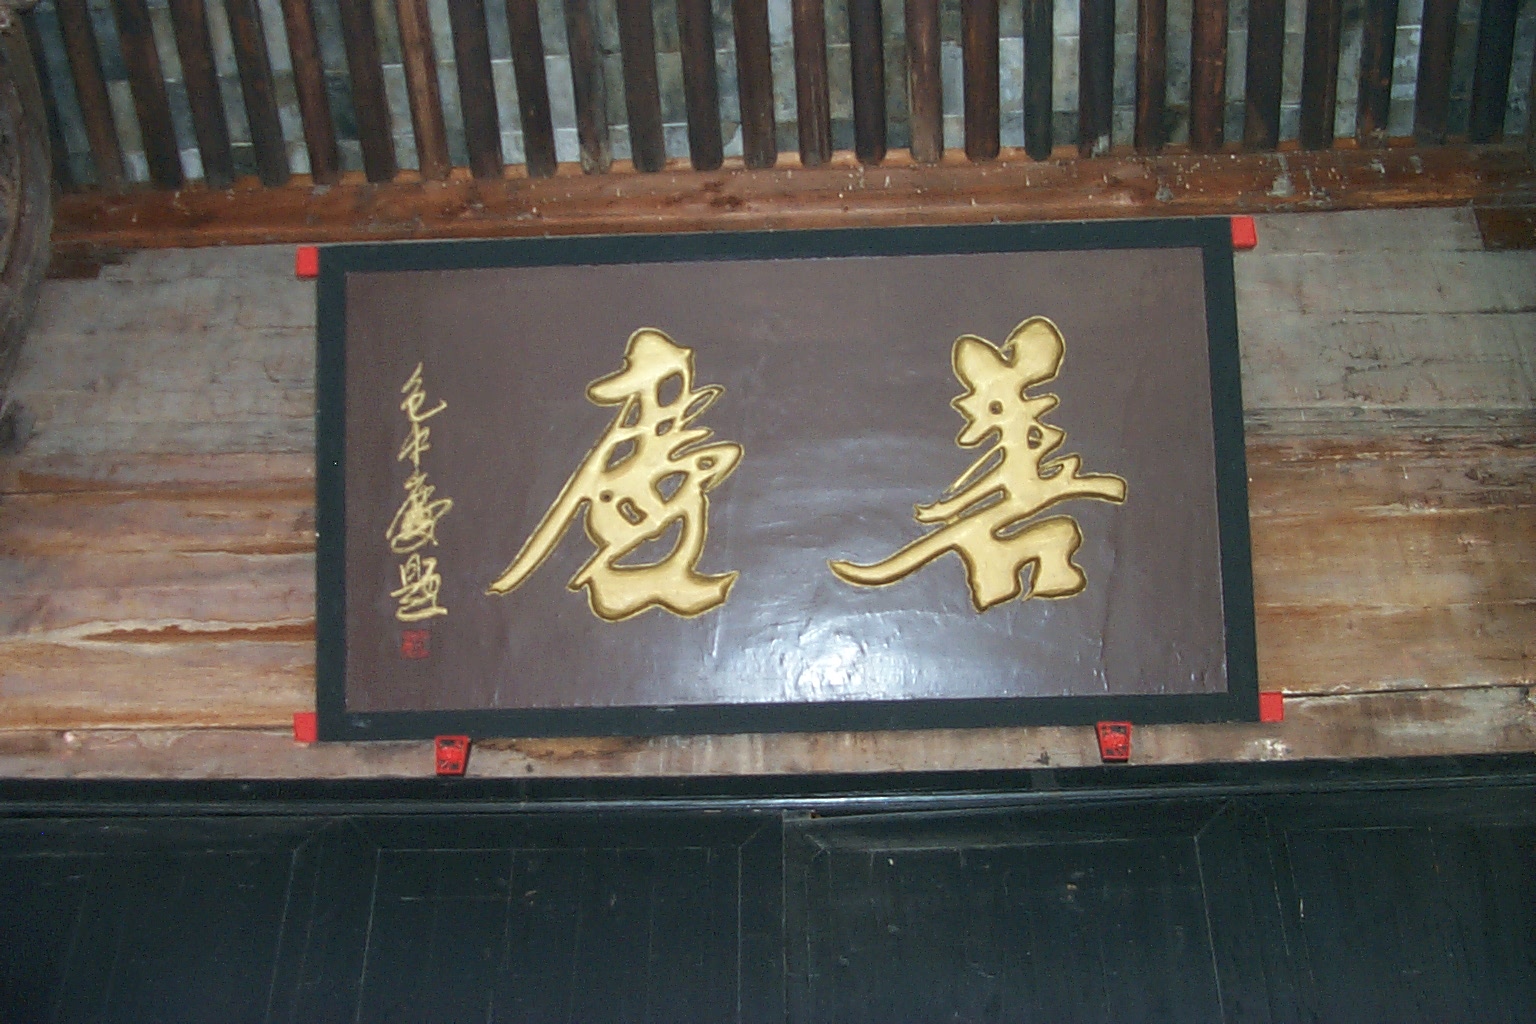 善慶
中慶題